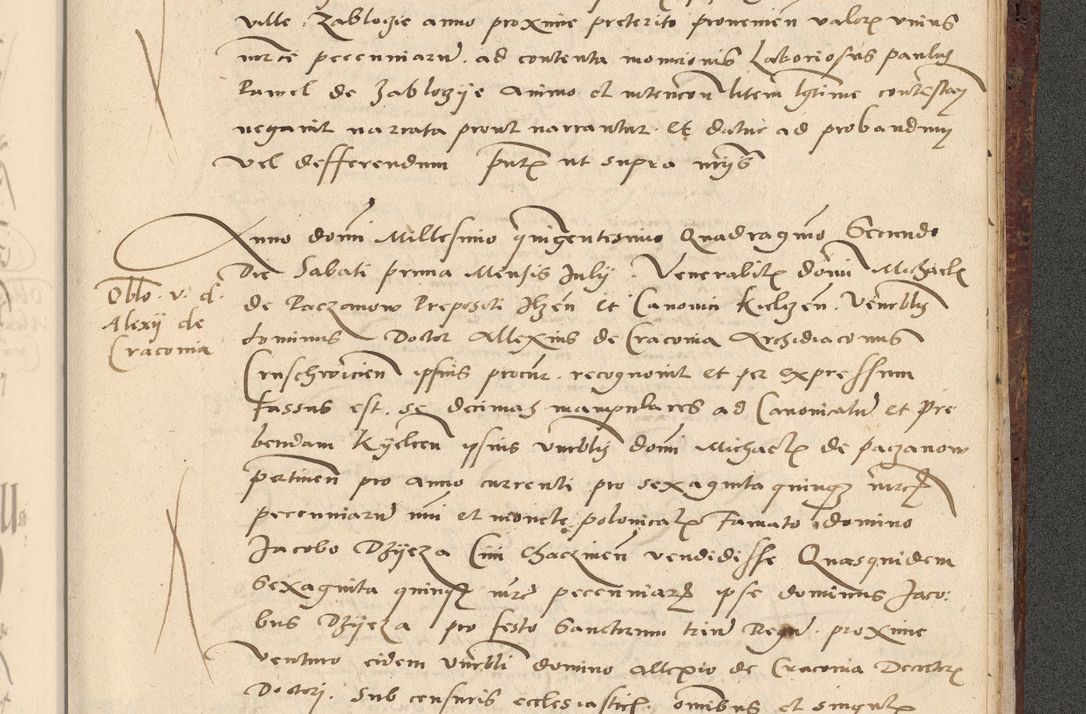 ville Zablogie anno proxime preterito provenien valore unius
mrce pecuniarum ad contenta monicionis Laboriosus paulus
Pawel de Zablogye animo et intencon litem lgtime contestan
negavit narrata prout narrantur Et datur ad probandum
vel defferendum pntx ut supra
Anno domi Millesimo quingentesimo Quadragmo Secundo
Die Sabati prima Mensis Julij Venerabilis domi Michaelis
de Paczanow Prepositi Ilzen et Canonici Kielczen Venerblis
dominus Doctor Allexius de Cracovia Archidiaconus
Cruschwicien ipsius procur recognovit et per expressum
fassus est se decimas manipulares ad Canonicatum et Pre
bendam Kyelcen ipsius Vnerblis domi Michaelis de paczanow
pertinen pro anno currenti pro sexaginta quinque mrcis
pecuniarum nui et monete polonicalis famato domino
Jacobo Dzyeza Civi Chaczinen vendidisse Quasquidem
Sexaginta quinque mrcas pecuniarum ipse dominus Jaco:
bus Dzyeza pro festo Sanctorum trium Regum proxime
venturo eidem Vnerbli domino Allexio de Cracovia Decretorum
Doctori Sub censuris ecclesiasticis omnibus et singulis
Oblo. v. d.
Alexij de
Cracovia